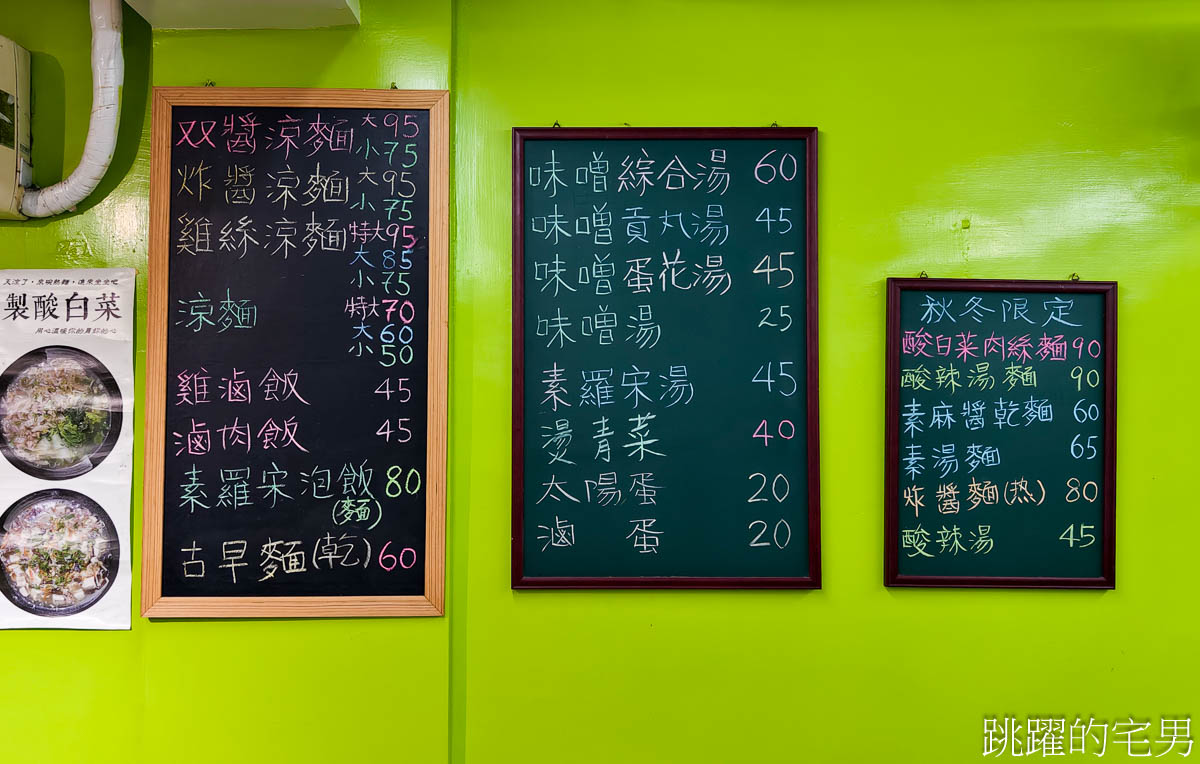 天涼了，來碗熱麵，進來坐坐吧
製酸白菜
用心溫暖你的胃和你的心
双醬涼麵 大95
小75
炸醬涼麵 大95
小75
雞絲涼麵 特大95
大85
小75
涼麵 特大70
大60
小50
雞滷飯 45
滷肉飯 45
素羅宋泡飯 80
(麵)
古早麵(乾) 60
味噌綜合湯 60
味噌貢丸湯 45
味噌蛋花湯 45
味噌湯 25
素羅宋湯 45
燙青菜 40
太陽蛋 20
滷 蛋 20
秋冬限定
酸白菜肉絲麵 90
酸辣湯麵 90
素麻醬乾麵 60
素湯麵 65
炸醬麵(热) 80
酸辣湯 45
跳躍的宅男